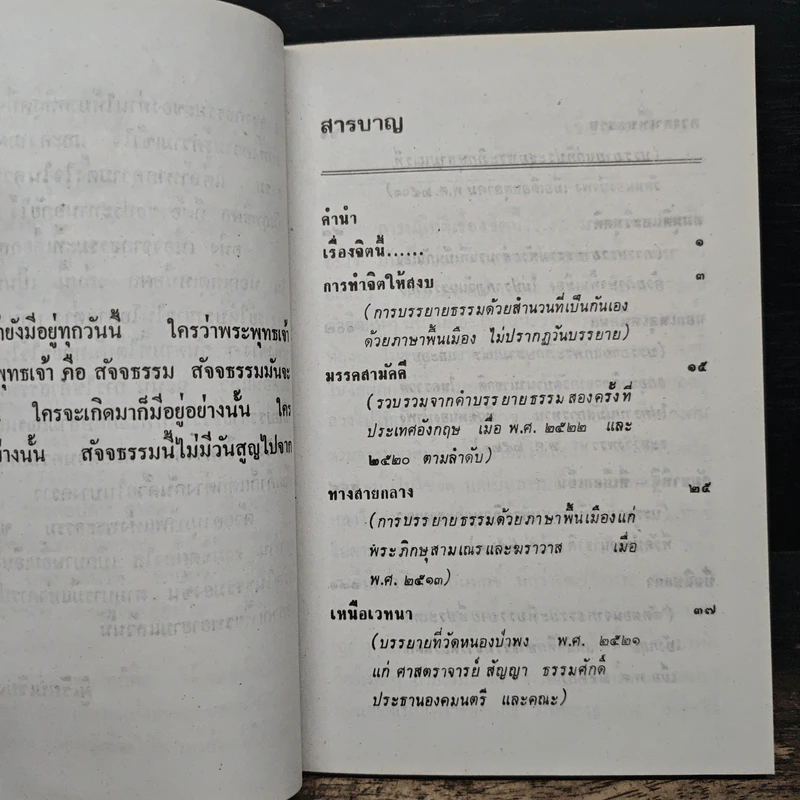 ายังมีอยู่ทุกวันนี้ ใครว่าพระพุทธเจ้า
พุทธเจ้า คือ สัจจธรรม สัจจธรรมมันจะ
ใครจะเกิดมาก็มีอยู่อย่างนั้น ใคร
ย่างนั้น สัจจธรรมนี้ไม่มีวันสูญไปจาก
สารบาญ
คำนำ
เรื่องจิตนี้...... ๑
การทำจิตให้สงบ ๓
(การบรรยายธรรมด้วยสำนวนที่เป็นกันเอง
ด้วยภาษาพื้นเมือง ไม่ปรากฏวันบรรยาย)
มรรคสามัคคี ๑๕
(รวบรวมจากคำบรรยายธรรม สองครั้งที่
ประเทศอังกฤษ เมื่อ พ.ศ. ๒๕๒๒ และ
๒๕๒๐ ตามลำดับ)
ทางสายกลาง ๒๕
(การบรรยายธรรมด้วยภาษาพื้นเมืองแก่
พระภิกษุสามเณรและฆราวาส เมื่อ
พ.ศ. ๒๕๑๓)
เหนือเวทนา ๓๗
(บรรยายที่วัดหนองป่าพง พ.ศ. ๒๕๒๑
แก่ ศาสตราจารย์ สัญญา ธรรมศักดิ์
ประธานองคมนตรี และคณะ)